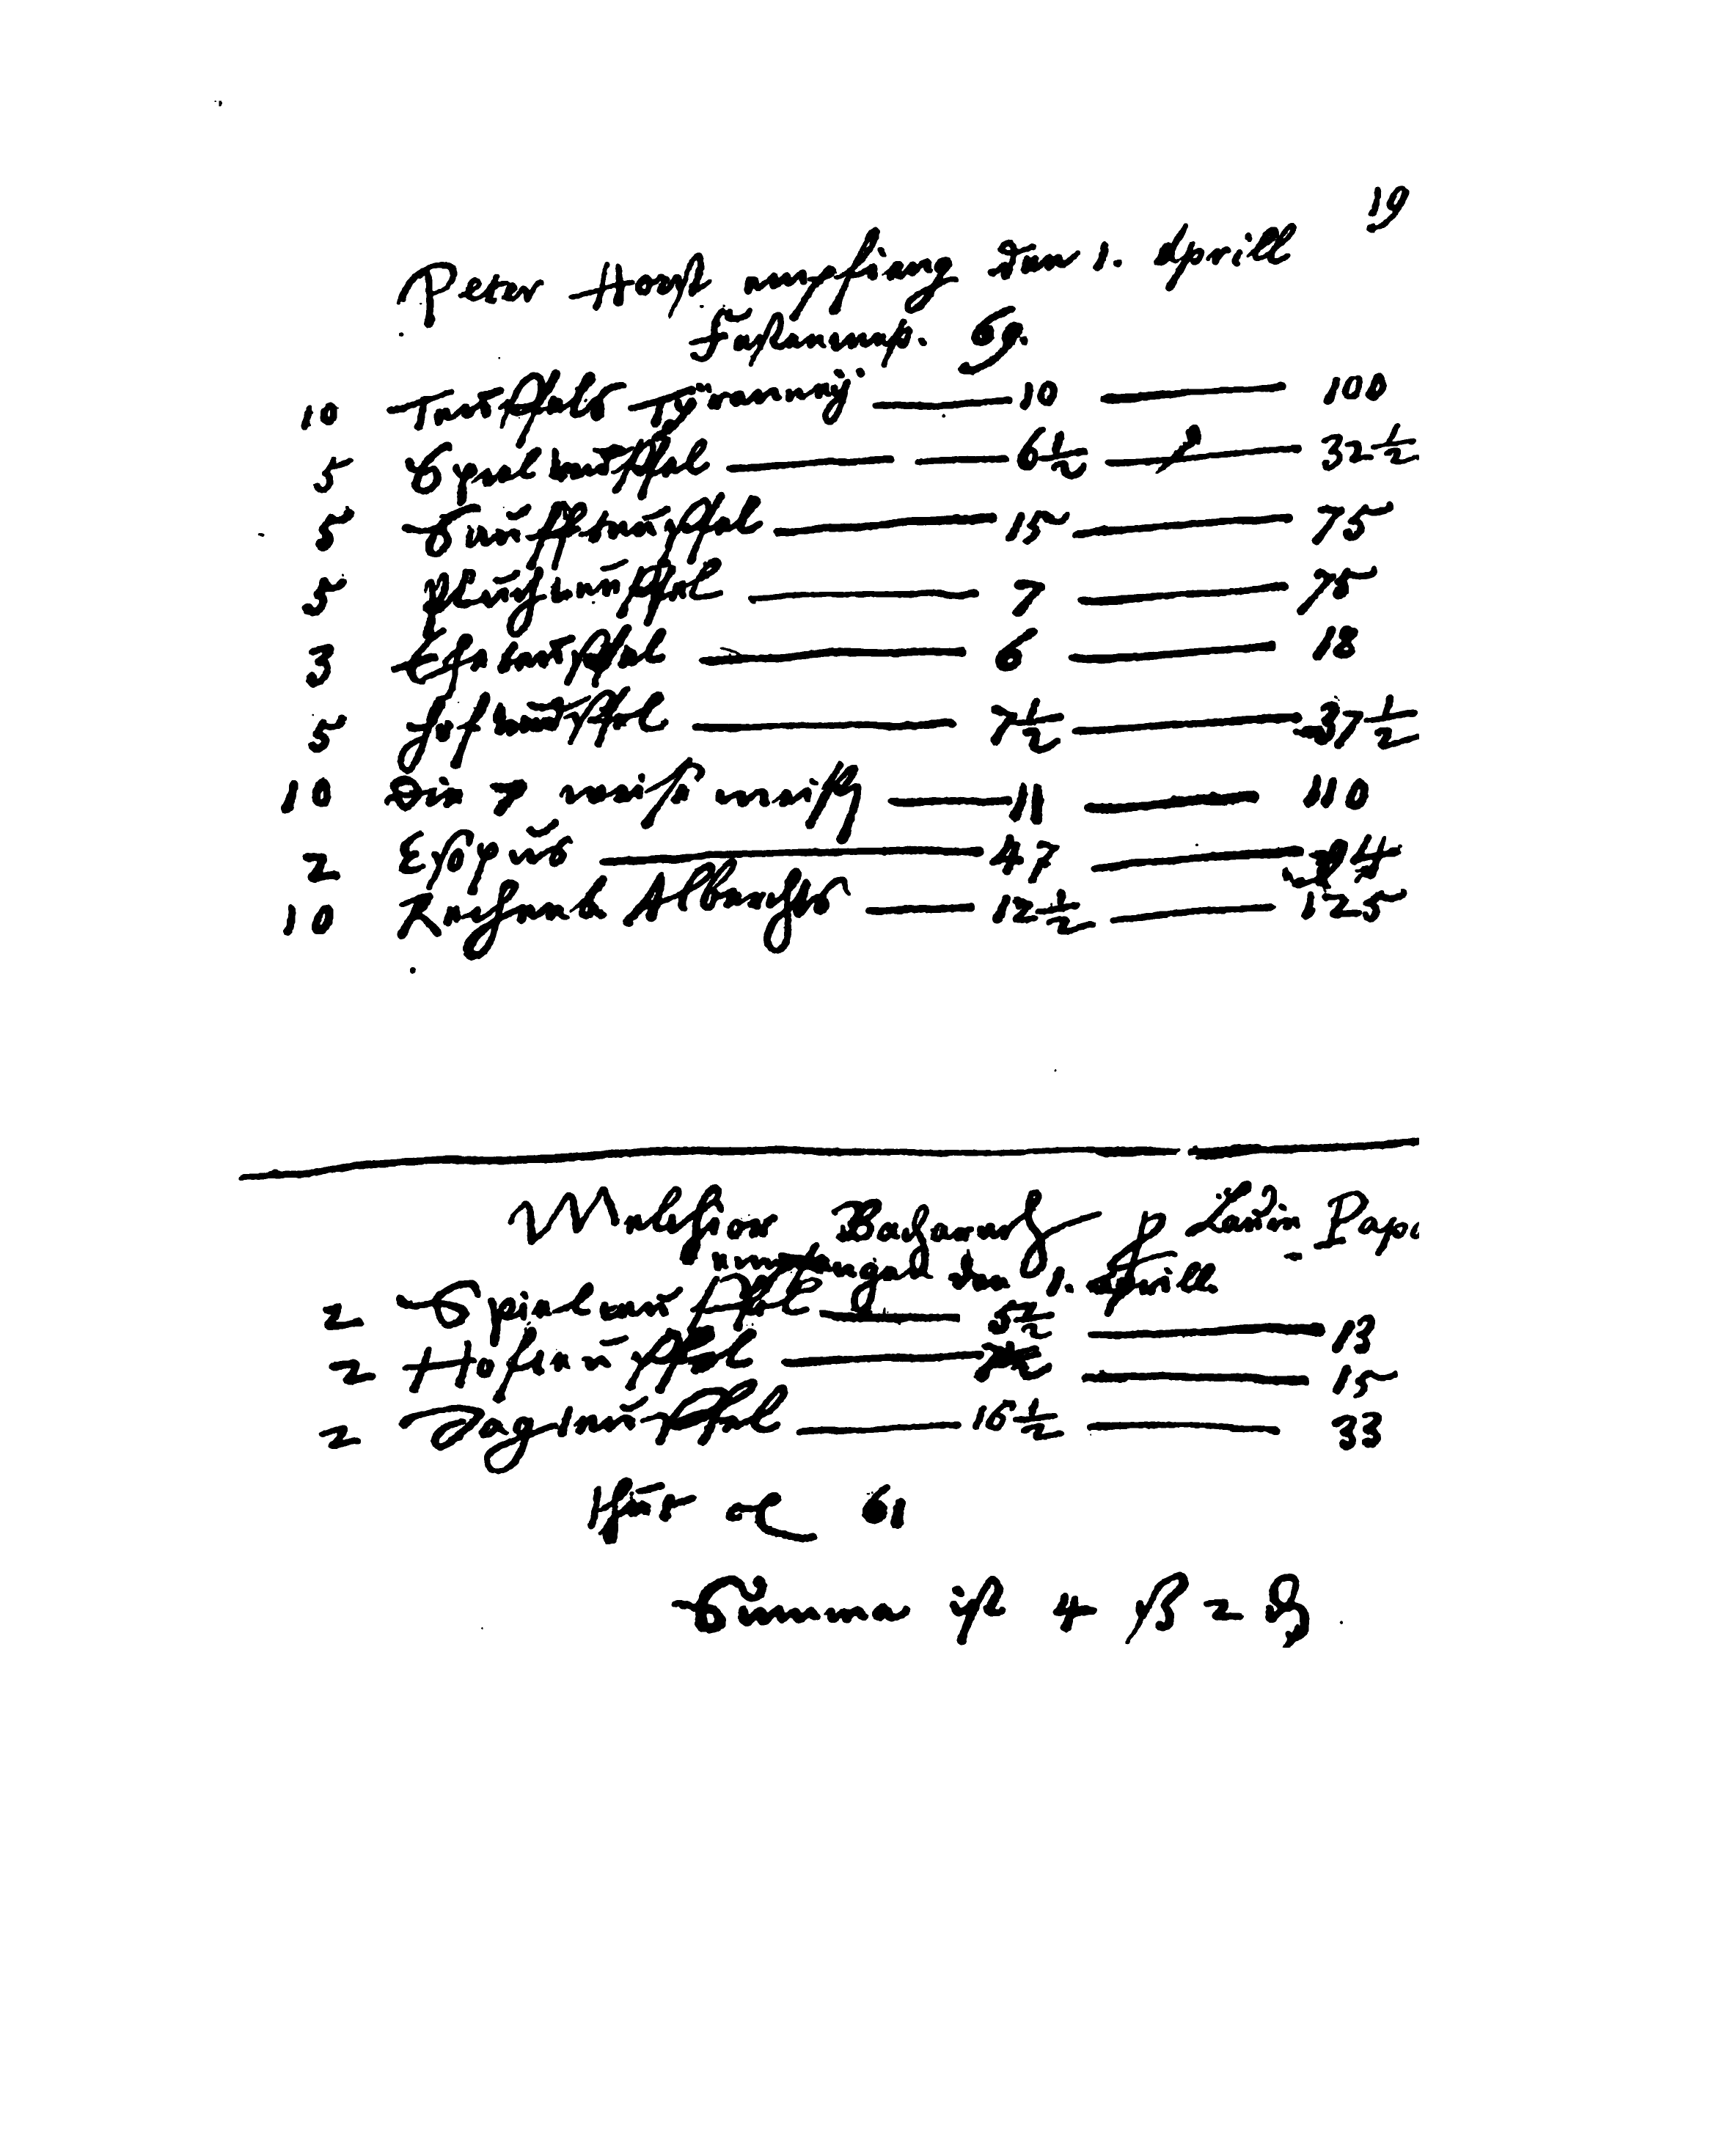 19
Peter Horst empfieng den 1. Aprill
Fastenmess. 69.
10 Teuffels Tyranney 10 100
5 Spielteuffel 6 1/2 32 1/2
5 Sauffteuffel 15 75
5 Fluchteuffel 7 75
3 Eheteuffel 6 18
5 Hofteuffel 7 1/2 37 1/2
10 Die 7 weise meister 11 110
2 47 94
10 Rechenb Albrechts 12 1/2 125
Melchior p Papi
empfangen den 1. Aprill
2 Spielteuffel 13
2 Hofteuffel 15
2 Jagteuffel 16 1/2 33
61
Summa ist 4 β 2